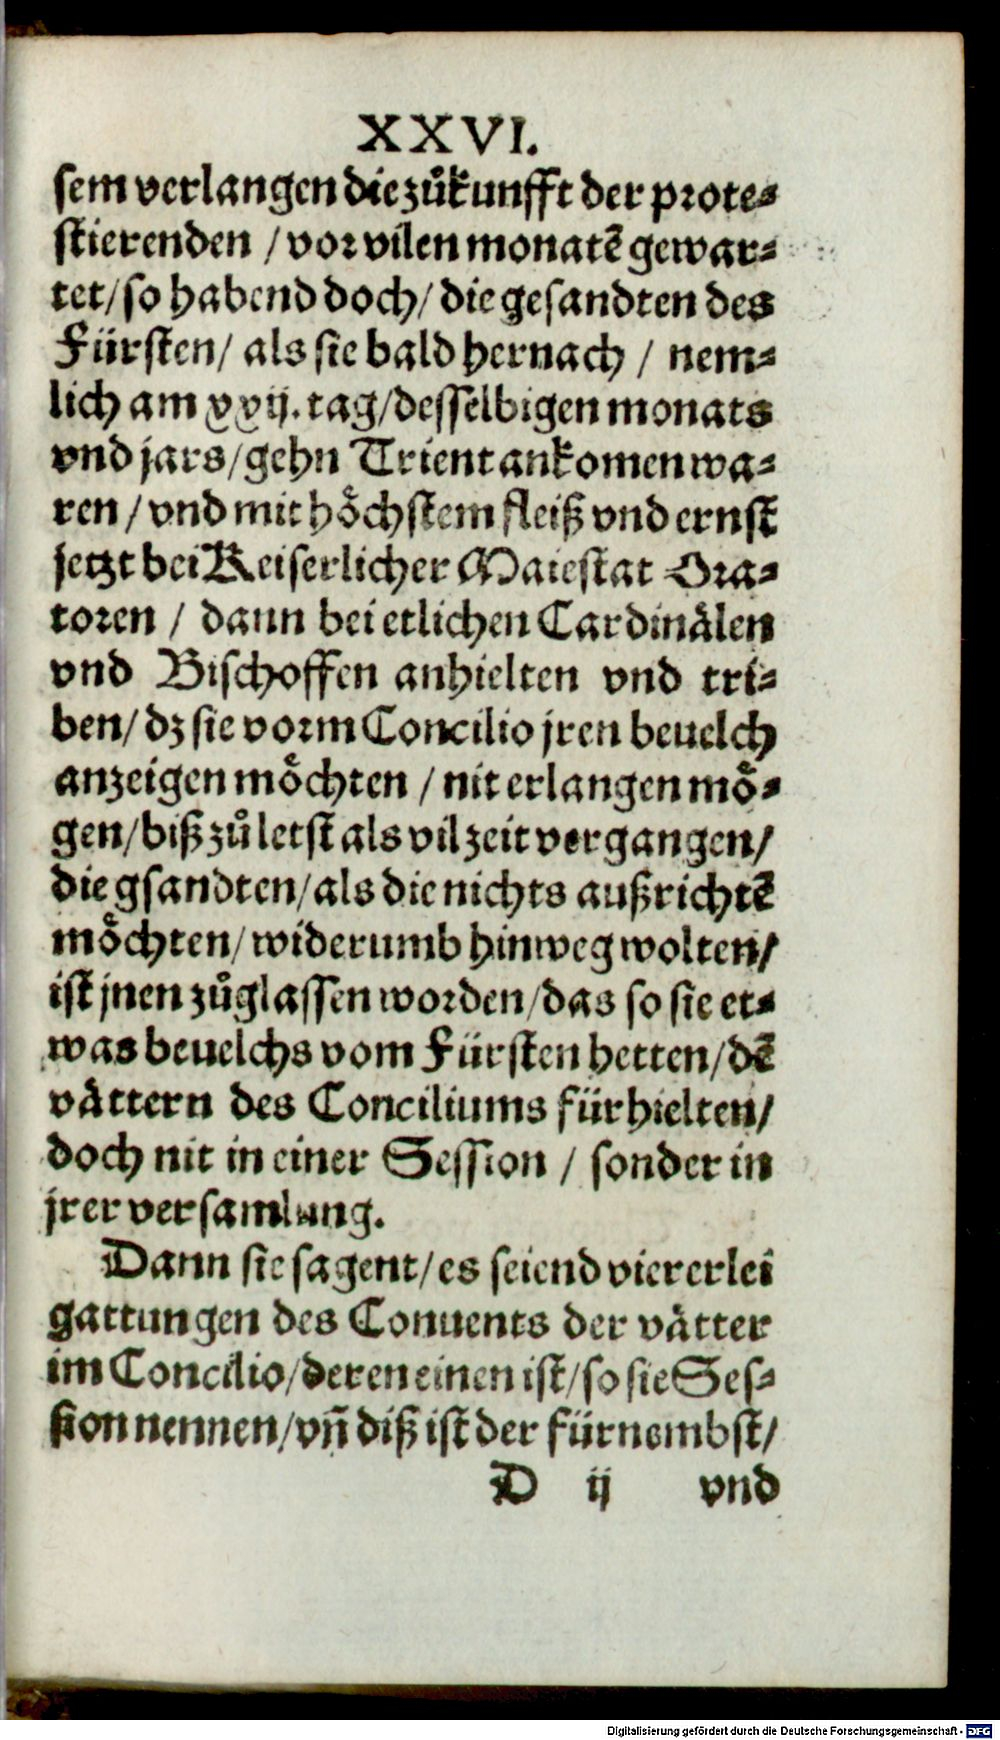 XXVI.
sem verlangen die zůkunfft der prote-
stierenden / vor vilen monatẽ gewar-
tet / so habend doch / die gesandten des
Fürsten / als sie bald hernach / nem-
lich am xxij. tag / desselbigen monats
vnd jars / gehn Trient ankomen wa-
ren / vnd mit hoͤchstem fleiß vnd ernst
jetzt bei Keiserlicher Maiestat Ora-
toren / dann bei etlichen Cardinaͤlen
vnd Bischoffen anhielten vnd tri-
ben / dz sie vorm Concilio jren beuelch
anzeigen moͤchten / nit erlangen moͤ-
gen / biß zů letst als vil zeit vergangen /
die gsandten / als die nichts außrichtẽ
moͤchten / widerumb hinweg wolten /
ist jnen zůglassen worden / das so sie et-
was beuelchs vom Fürsten hetten / dẽ
vaͤttern des Conciliums fürhielten /
doch nit in einer Session / sonder in
jrer versamlung.
Dann sie sagent / es seiend viererlei
gattungen des Conuents der vaͤtter
im Concilio / deren einen ist / so sie Ses-
sion nennen / vñ diß ist der fürnembst /
D ij vnd
Digitalisierung gefördert durch die Deutsche Forschungsgemeinschaft - DFG